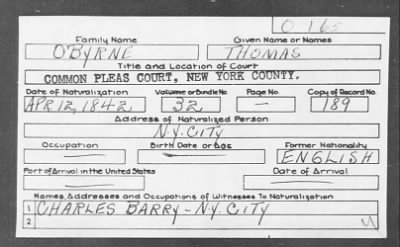 O 165
Family Name Given Name or Names
O'BYRNE THOMAS
Title and Location of Court
COMMON PLEAS COURT, NEW YORK COUNTY.
Date of Naturalization Volume or Bundle No. Page No. Copy of Record No.
APR 12, 1842 32 — 189
Address of Naturalized Person
N.Y. CITY
Occupation Birth Date or Age Former Nationality
— — ENGLISH
Port of Arrival in the United States Date of Arrival
— —
Names, Addresses and Occupations of Witnesses To Naturalization
1 CHARLES BARRY - N.Y. CITY
2